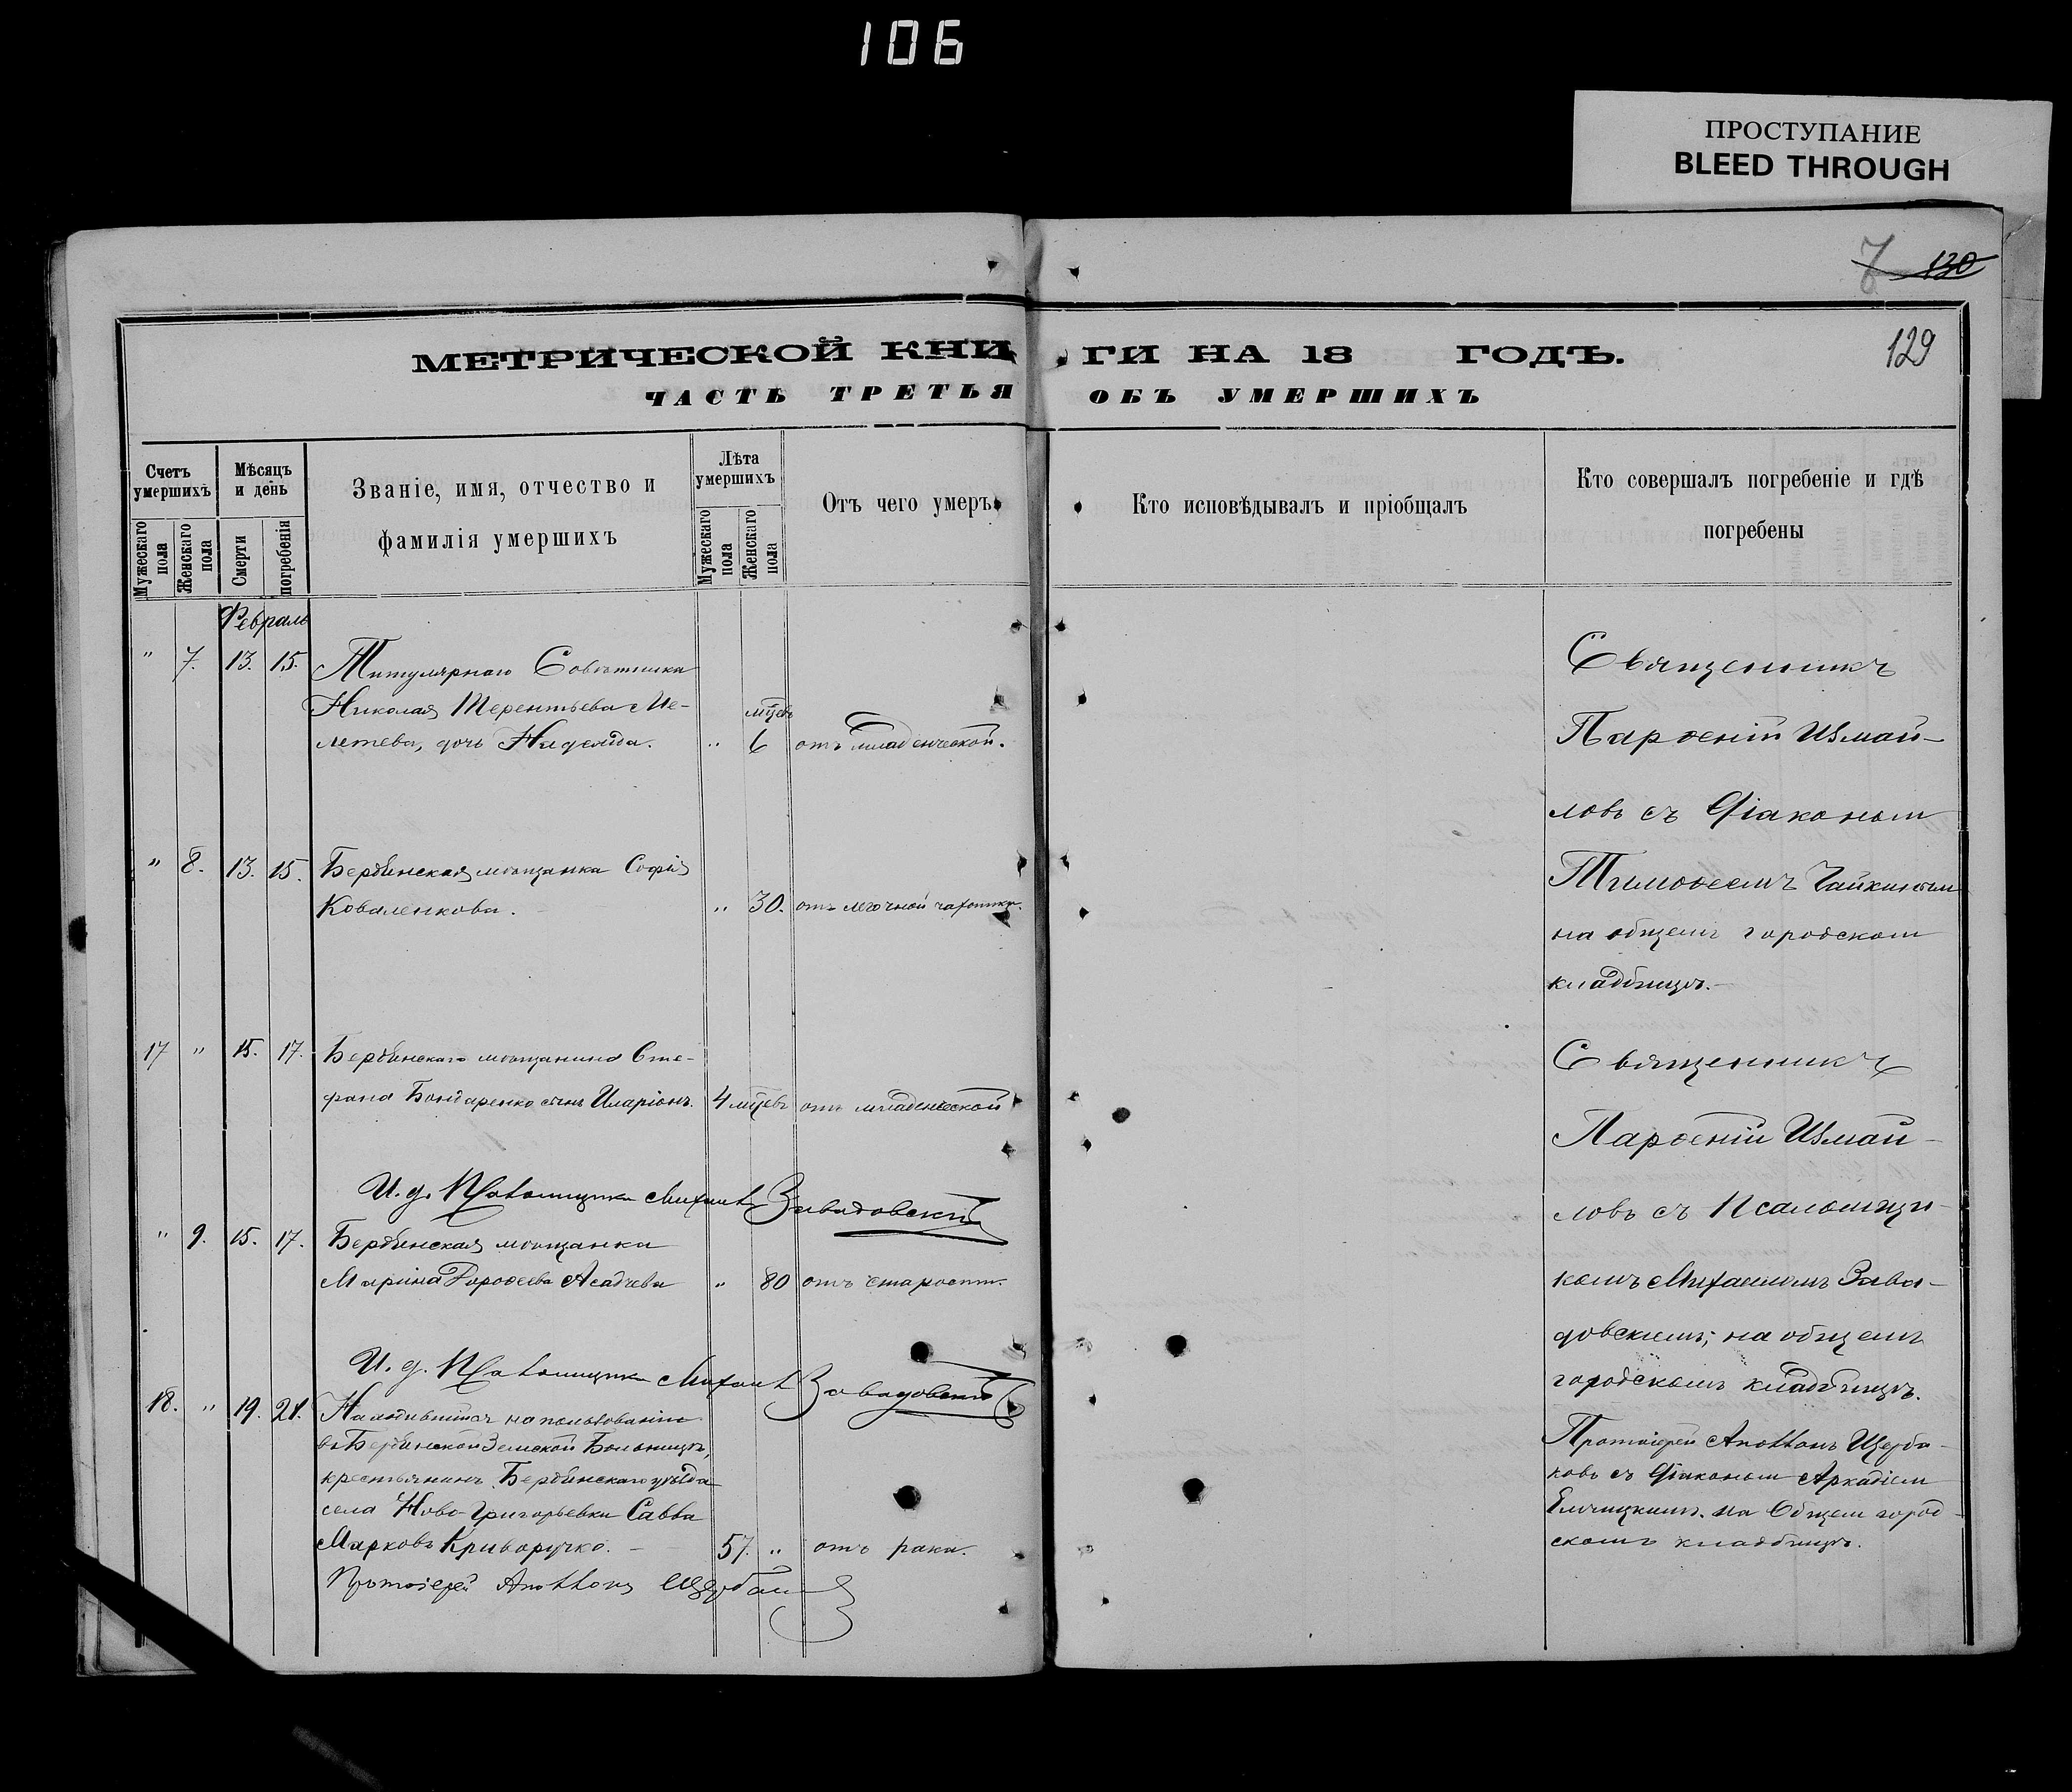 106
ПРОСТУПАНИЕ
BLEED THROUGH
7 130
129
МЕТРИЧЕСКОЙ КНИГИ НА 18 ГОДЪ.
ЧАСТЬ ТРЕТЬЯ ОБЪ УМЕРШИХЪ
Счетъ умершихъ
Мужескаго пола
Женскаго пола
Мѣсяцъ и день
Смерти
погребенія
Званіе, имя, отчество и
фамилія умершихъ
Лѣта умершихъ
Мужескаго пола
Женскаго пола
Отъ чего умеръ
Кто исповѣдывалъ и пріобщалъ
Кто совершалъ погребеніе и гдѣ
погребены
Февраль
" 7. 13. 15. Титулярнаго Совѣтника
Николая Терентьева Ме-
летева, дочь Надежда. " 6 мцевъ отъ младенческой.
Священникъ
Парѳеній Измай-
ловъ съ Діакономъ
Тимоѳеемъ Чайкинымъ
на общемъ городскомъ
кладбищѣ.
" 8. 13. 15. Бердянская мѣщанка Софія
Коваленкова. " 30. отъ легочной чахотки.
17 " 15. 17. Бердянскаго мѣщанина Сте-
фана Бондаренко сынъ Иларіонъ. 4 мцевъ отъ младенческой
Священникъ
Парѳеній Измай-
ловъ съ Псаломщи-
комъ Михаиломъ Зава-
довскимъ; на общемъ
городскомъ кладбищѣ.
И. д. Псаломщика Михаилъ Завадовскій
" 9. 15. 17. Бердянская мѣщанка
Марина Дороѳеева Асадчева " 80 отъ старости.
И. д. Псаломщика Михаилъ Завадовскій
18. " 19. 21. Находившійся на пользованіи
въ Бердянской Земской Больницѣ,
крестьянинъ Бердянскаго уѣзда
села Ново-Григорьевки Савва
Марковъ Криворучко. 57. " отъ рака.
Протоіерей Аполлонъ Щерба-
ковъ съ Діакономъ Аркадіемъ
на Общемъ город-
скомъ кладбищѣ.
Протоіерей Аполлонъ